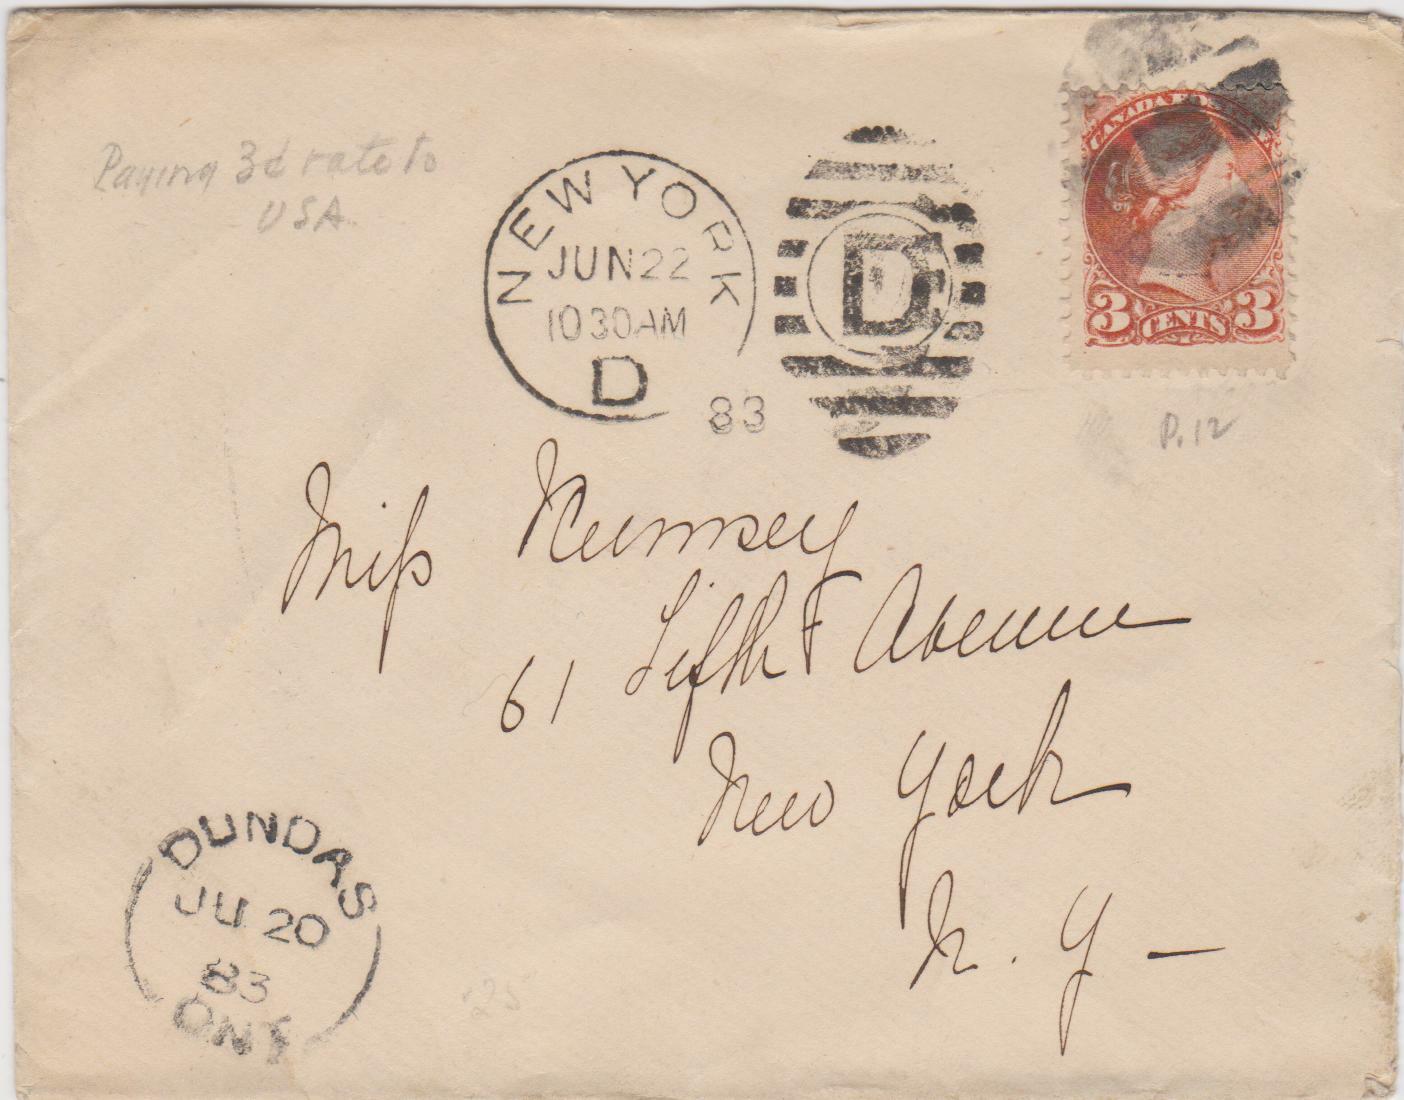 Paying 3¢ rate to
USA
NEW YORK
JUN 22
10 30 AM
D
83
D
CANADA POSTAGE
3 CENTS 3
P. 12
Miss Rumsey
61 Fifth Avenue
New York
N. Y —
DUNDAS
JU 20
83
ONT
25